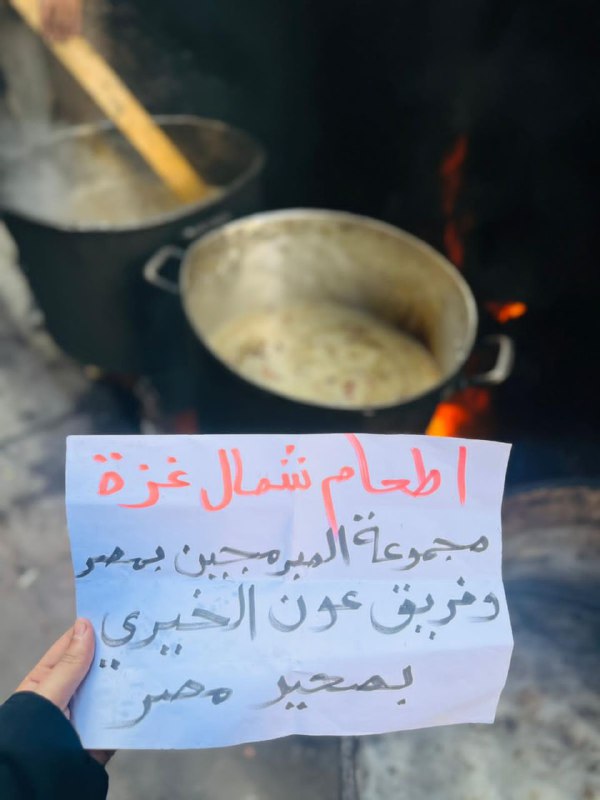 اطعام شمال غزة
مجموعة المبرمجين بمصر
وفريق عون الخيري
بصعير مصر